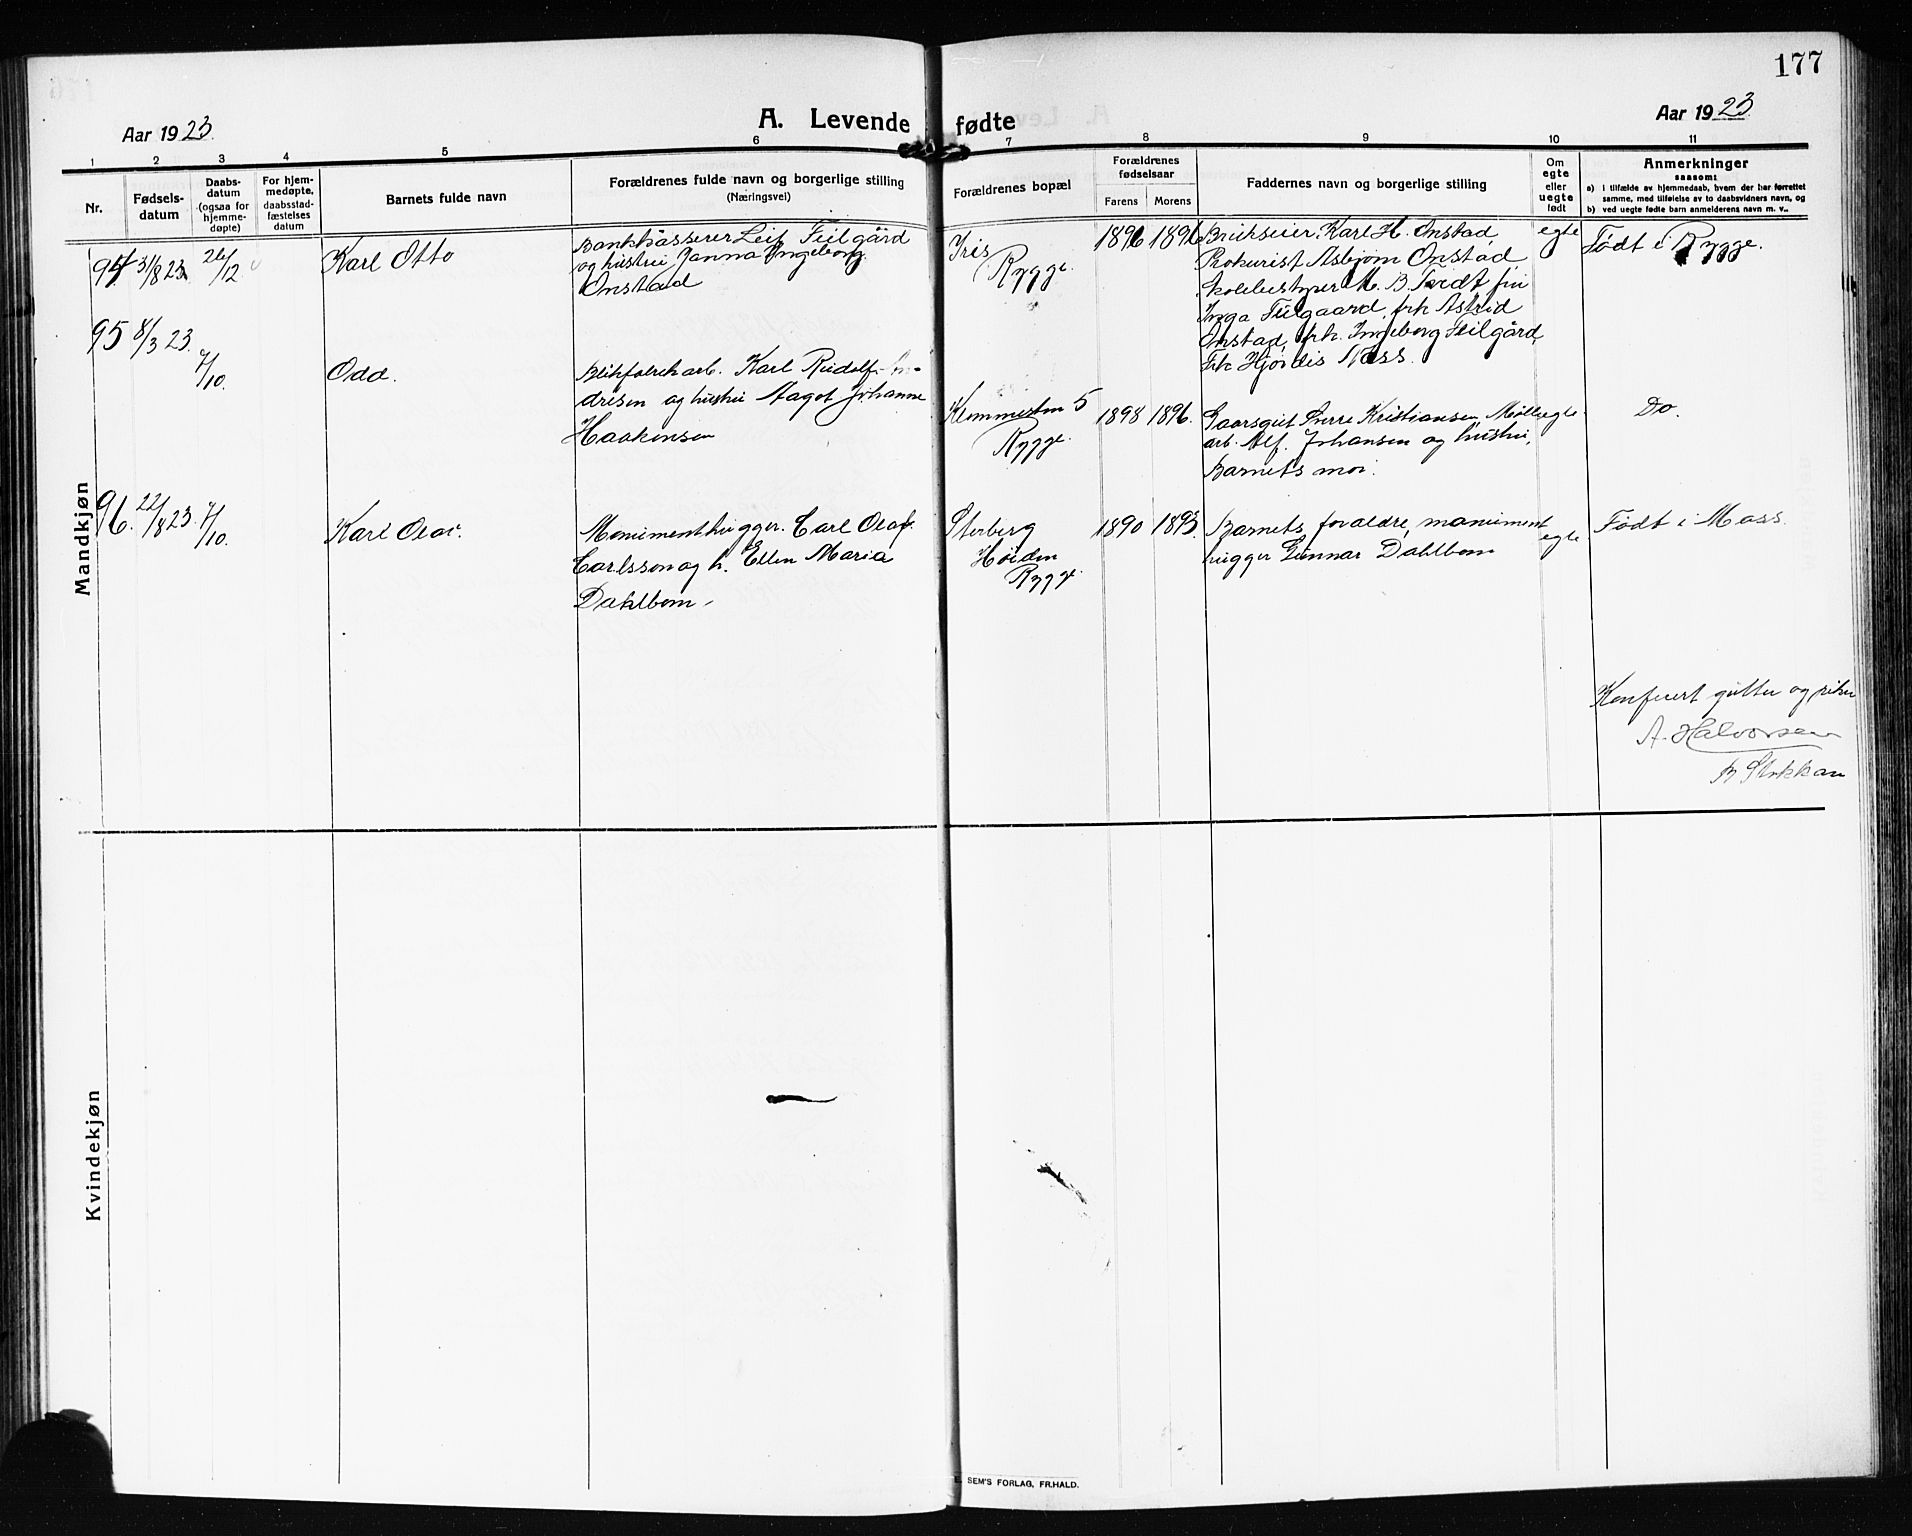 177
Aar 1923.
A. Levende fødte
Aar 1923
1 2 3 4 5 6 7 8 9 10 11
Nr.
Fødsels-
datum
Daabs-
datum
(ogsaa for
hjemme-
døpte)
For hjem-
medøpte,
daabsstad-
fæstelses
datum
Barnets fulde navn
Forældrenes fulde navn og borgerlige stilling
(Næringsvei)
Forældrenes bopæl
Forældrenes
fødselsaar
Farens Morens
Faddernes navn og borgerlige stilling
Om
egte
eller
uegte
født
Anmerkninger
saasom:
a) i tilfælde av hjemmedaab, hvem der har forrettet
samme, med tilføielse av to daabsvidners navn, og
b) ved uegte fødte barn anmelderens navn m. v..
Mandkjøn
94 31/8 23 26/12
Karl Otto
Bankkasserer Leif Feilgård
og hustru Janna Ingeborg
Onstad
Iris
Rygge.
1896 1896
Brukseier Karl H. Onstad,
Prokurist Asbjørn Onstad,
Skolebestyrer M. B. Tvedt, fru
Inga Feilgaard, frk Astrid
Onstad, frk. Ingeborg Feilgård,
Frk Hjørdis Næss.
egte
Født i Rygge.
95 8/3 23. 7/10.
Odd.
Blikfabrikarb. Karl Rudolf An-
dresen og hustru Aagot Johanne
Haakensen
5
Rygge.
1898 1896.
Gaardsgut Sverre Kristiansen, Mølle-
arb. Alf. Johansen og hustru,
Barnets mor.
egte.
Do.
96. 22/8 23. 7/10.
Karl Olof.
Monumenthugger Carl Olof
Carlsson og h. Ellen Maria
Dahlbom.
Høiden
Rygge.
1890 1893.
Barnets forældre, monument
hugger Gunnar Dahlbom
egte.
Født i Moss.
Konferert gutter og piker
A. Halvorsen
B Stokkan
Kvindekjøn
E. SEM'S FORLAG, FR.HALD.